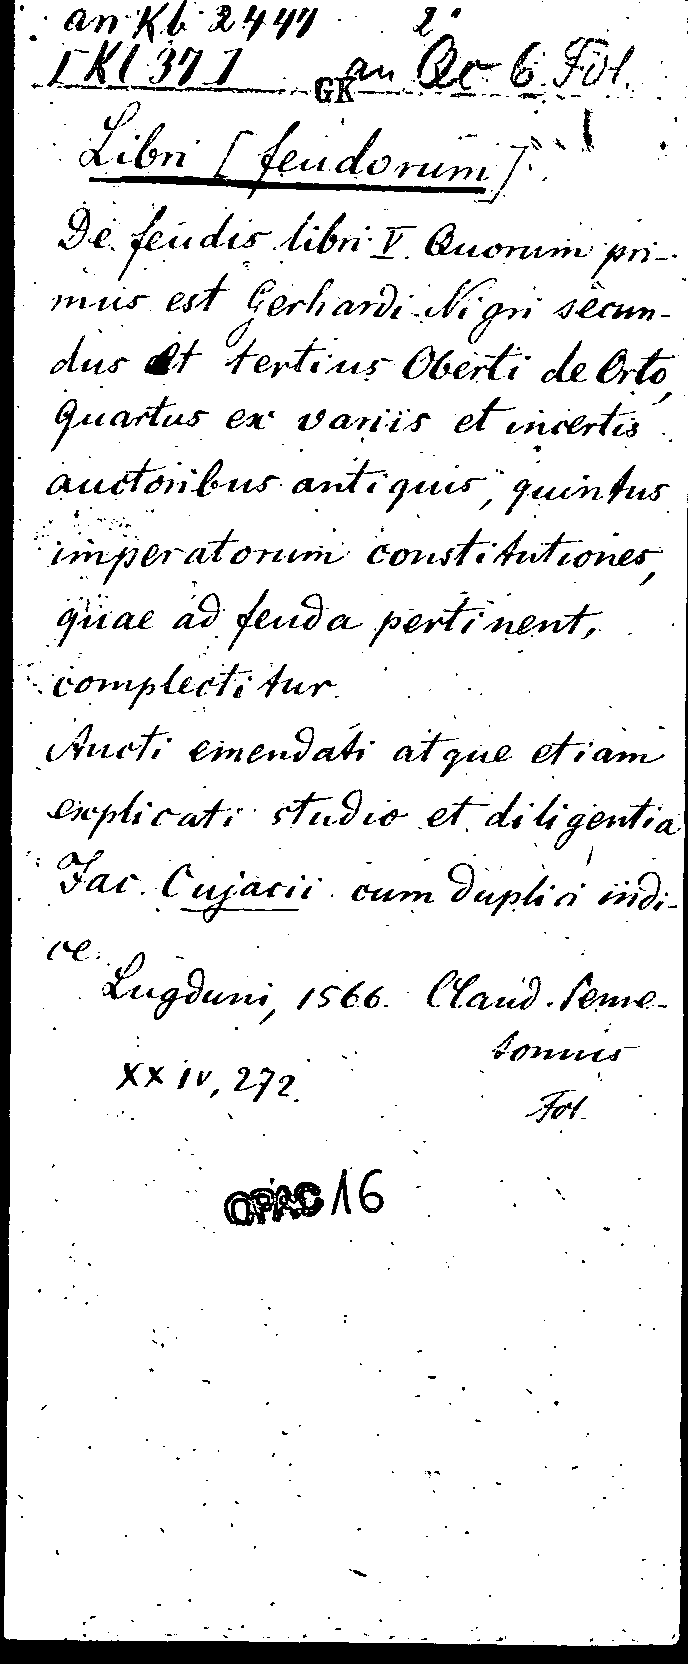 an Kb 2447 2°
[Kl 37] an Qc 6 Fol.
GK
Libri [feudorum].
De feudis libri V. Quorum pri-
mus est Gerhardi Nigri secun-
dus et tertius Oberti de Orto,
quartus ex variis et incertis
auctoribus antiquis, quintus
imperatorum constitutiones,
quae ad feuda pertinent,
complectitur.
Aucti emendati atque etiam
explicati studio et diligentia
Jac. Cujacii cum duplici indi-
ce.
Lugduni, 1566. Claud. Sene-
tonius
XXIV, 272.
Fol.
OPAC 16